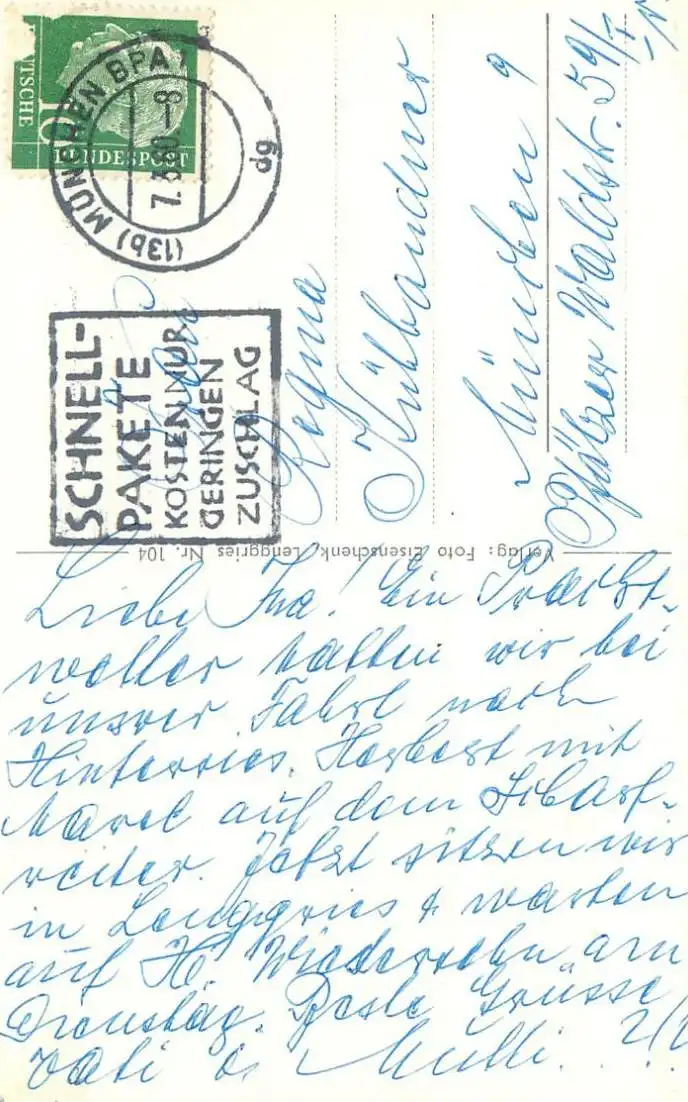 DEUTSCHE
10
BUNDESPOST
(13b) MÜNCHEN BPA
7.3.60-8
dg
SCHNELL-
PAKETE
KOSTEN NUR
GERINGEN
ZUSCHLAG
Regina
Kühbandner
München 9
Pfälzer Waldstr. 59/I
Verlag: Foto Eisenschenk, Lenggries Nr. 104
Liebe Ina! Ein Pracht-
wetter hatten wir bei
unsrer Fahrt nach
Hinterriss. Herbert mit
auf dem
weiter. Jetzt sitzen wir
in Lenggries & warten
auf H. Wiedersehn am
Dienstag. Beste Grüsse
Vati & Mutti...